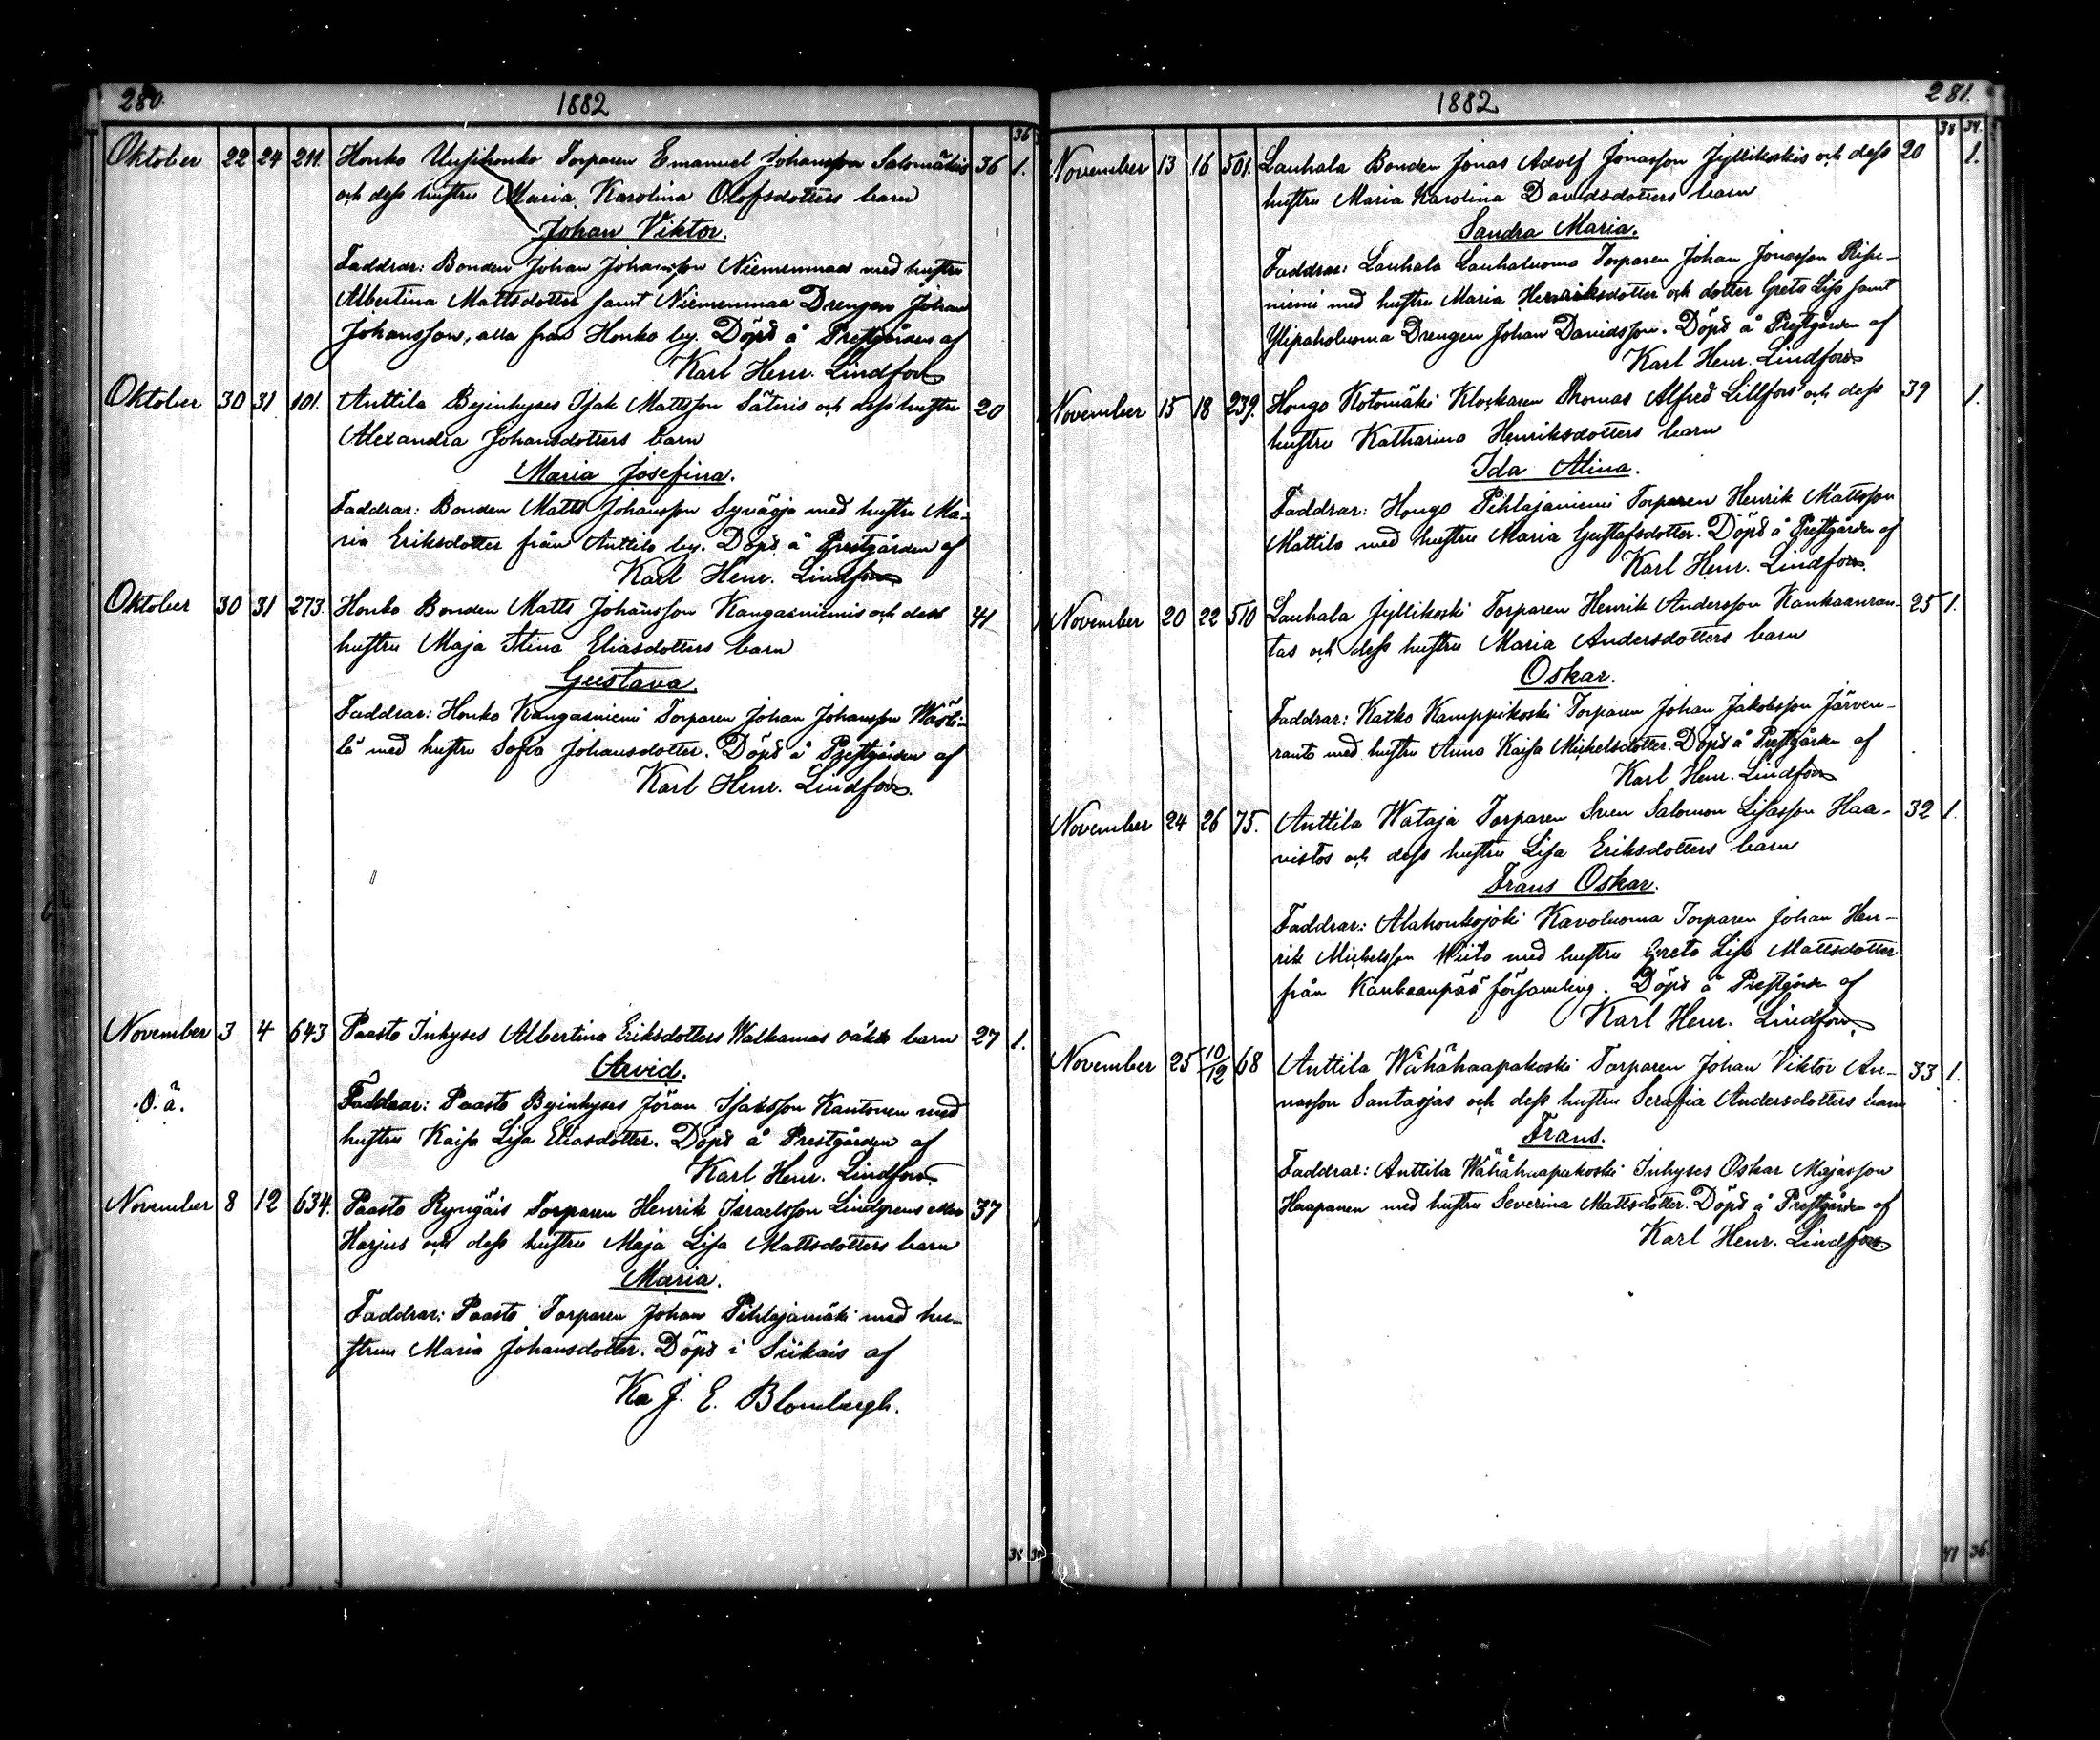 280. 1882
36
Oktober 22 24 211. Honko Uusihonko Torparen Emanuel Johansson Salomäkis 36 1.
och dess hustru Maria Karolina Olofsdotters barn
Johan Viktor.
Faddrar: Bonden Johan Johansson Niemenmaa med hustru
Albertina Mattsdotter samt Niemenmaa Drengen Johan
Johansson, alla från Honko by. Döpd å Prestgården af
Karl Henr. Lindfors
Oktober 30 31 101. Anttila Byinhyses Isak Mattsson Säteris och dess hustru 20 1
Alexandra Johansdotters barn
Maria Josefina.
Faddrar: Bonden Matts Johansson Syväoja med hustru Ma-
ria Eriksdotter från Anttila by. Döpd å Prestgården af
Karl Henr. Lindfors
Oktober 30 31 273. Honko Bonden Matts Johansson Kangasniemis och dess 41 1
hustru Maja Stina Eliasdotters barn
Gustava.
Faddrar: Honko Kangasniemi Torparen Johan Johansson
lä med hustru Sofia Johansdotter. Döpd å Prestgården af
Karl Henr. Lindfors.
November 3 4 643 Paasto Inhyses Albertina Eriksdotters Walkamas oäkta barn 27 1.
Arvid.
O. ä. Faddrar: Paasto Byinhyses Jöran Isaksson Kantonen med
hustru Kaisa Lisa Eliasdotter. Döpd å Prestgården af
Karl Henr. Lindfors.
November 8 12 634. Paasto Ryngäis Torparen Henrik Israelsson Lindgrens eller 37 1
Harjus och dess hustru Maja Lisa Mattsdotters barn
Maria.
Faddrar: Paasto Torparen Johan Pihlajamäki med hu-
strun Maria Johansdotter. Döpd i Siikais af
J. E. Blombergh.
38 39
1882 281.
38 34.
November 13 16 501. Lauhala Bonden Jonas Adolf Jonasson Jyllikoskis och dess 20 1.
hustru Maria Karolina Davidsdotters barn
Sandra Maria.
Faddrar: Lauhala Lauhaluoma Torparen Johan Jonasson
niemi med hustru Maria Henriksdotter och dotter Greta Lisa samt
Ylipaholuoma Drengen Johan Davidsson. Döpd å Prestgården af
Karl Henr. Lindfors
November 15 18 239. Hongo Kotomäki Klockaren Thomas Alfred Lillfors och dess 39 1.
hustru Katharina Henriksdotters barn
Ida Alina.
Faddrar: Hongo Pihlajaniemi Torparen Henrik Mattsson
Mattila med hustru Maria Gustafsdotter. Döpd å Prestgården af
Karl Henr. Lindfors.
November 20 22 510 Lauhala Jyllikoski Torparen Henrik Andersson Kankaanran- 25 1.
tas och dess hustru Maria Andersdotters barn
Oskar.
Faddrar: Katko Kamppikoski Torparen Johan Jakobsson Järven-
ranta med hustru Anna Kaisa Michelsdotter. Döpd å Prestgården af
Karl Henr. Lindfors
November 24 26 75. Anttila Wataja Torparen Sven Salomon Lisasson Haa- 32 1.
vistos och dess hustru Lisa Eriksdotters barn
Frans Oskar.
Faddrar: Alahonkajoki Kavoluoma Torparen Johan Hen-
rik Michelsson Wiita med hustru Greta Lisa Mattsdotter
från Kankaanpää församling. Döpd å Prestgården af
Karl Henr. Lindfors.
November 25 10/12 68 Anttila Wähähaapakoski Torparen Johan Viktor An- 33. 1.
nasson Santaojas och dess hustru Serafia Andersdotters barn
Frans.
Faddrar: Anttila Wähähaapakoski Inhyses Oskar Majasson
Haapanen med hustru Severina Mattsdotter. Döpd å Prestgården af
Karl Henr. Lindfors.
41 36.